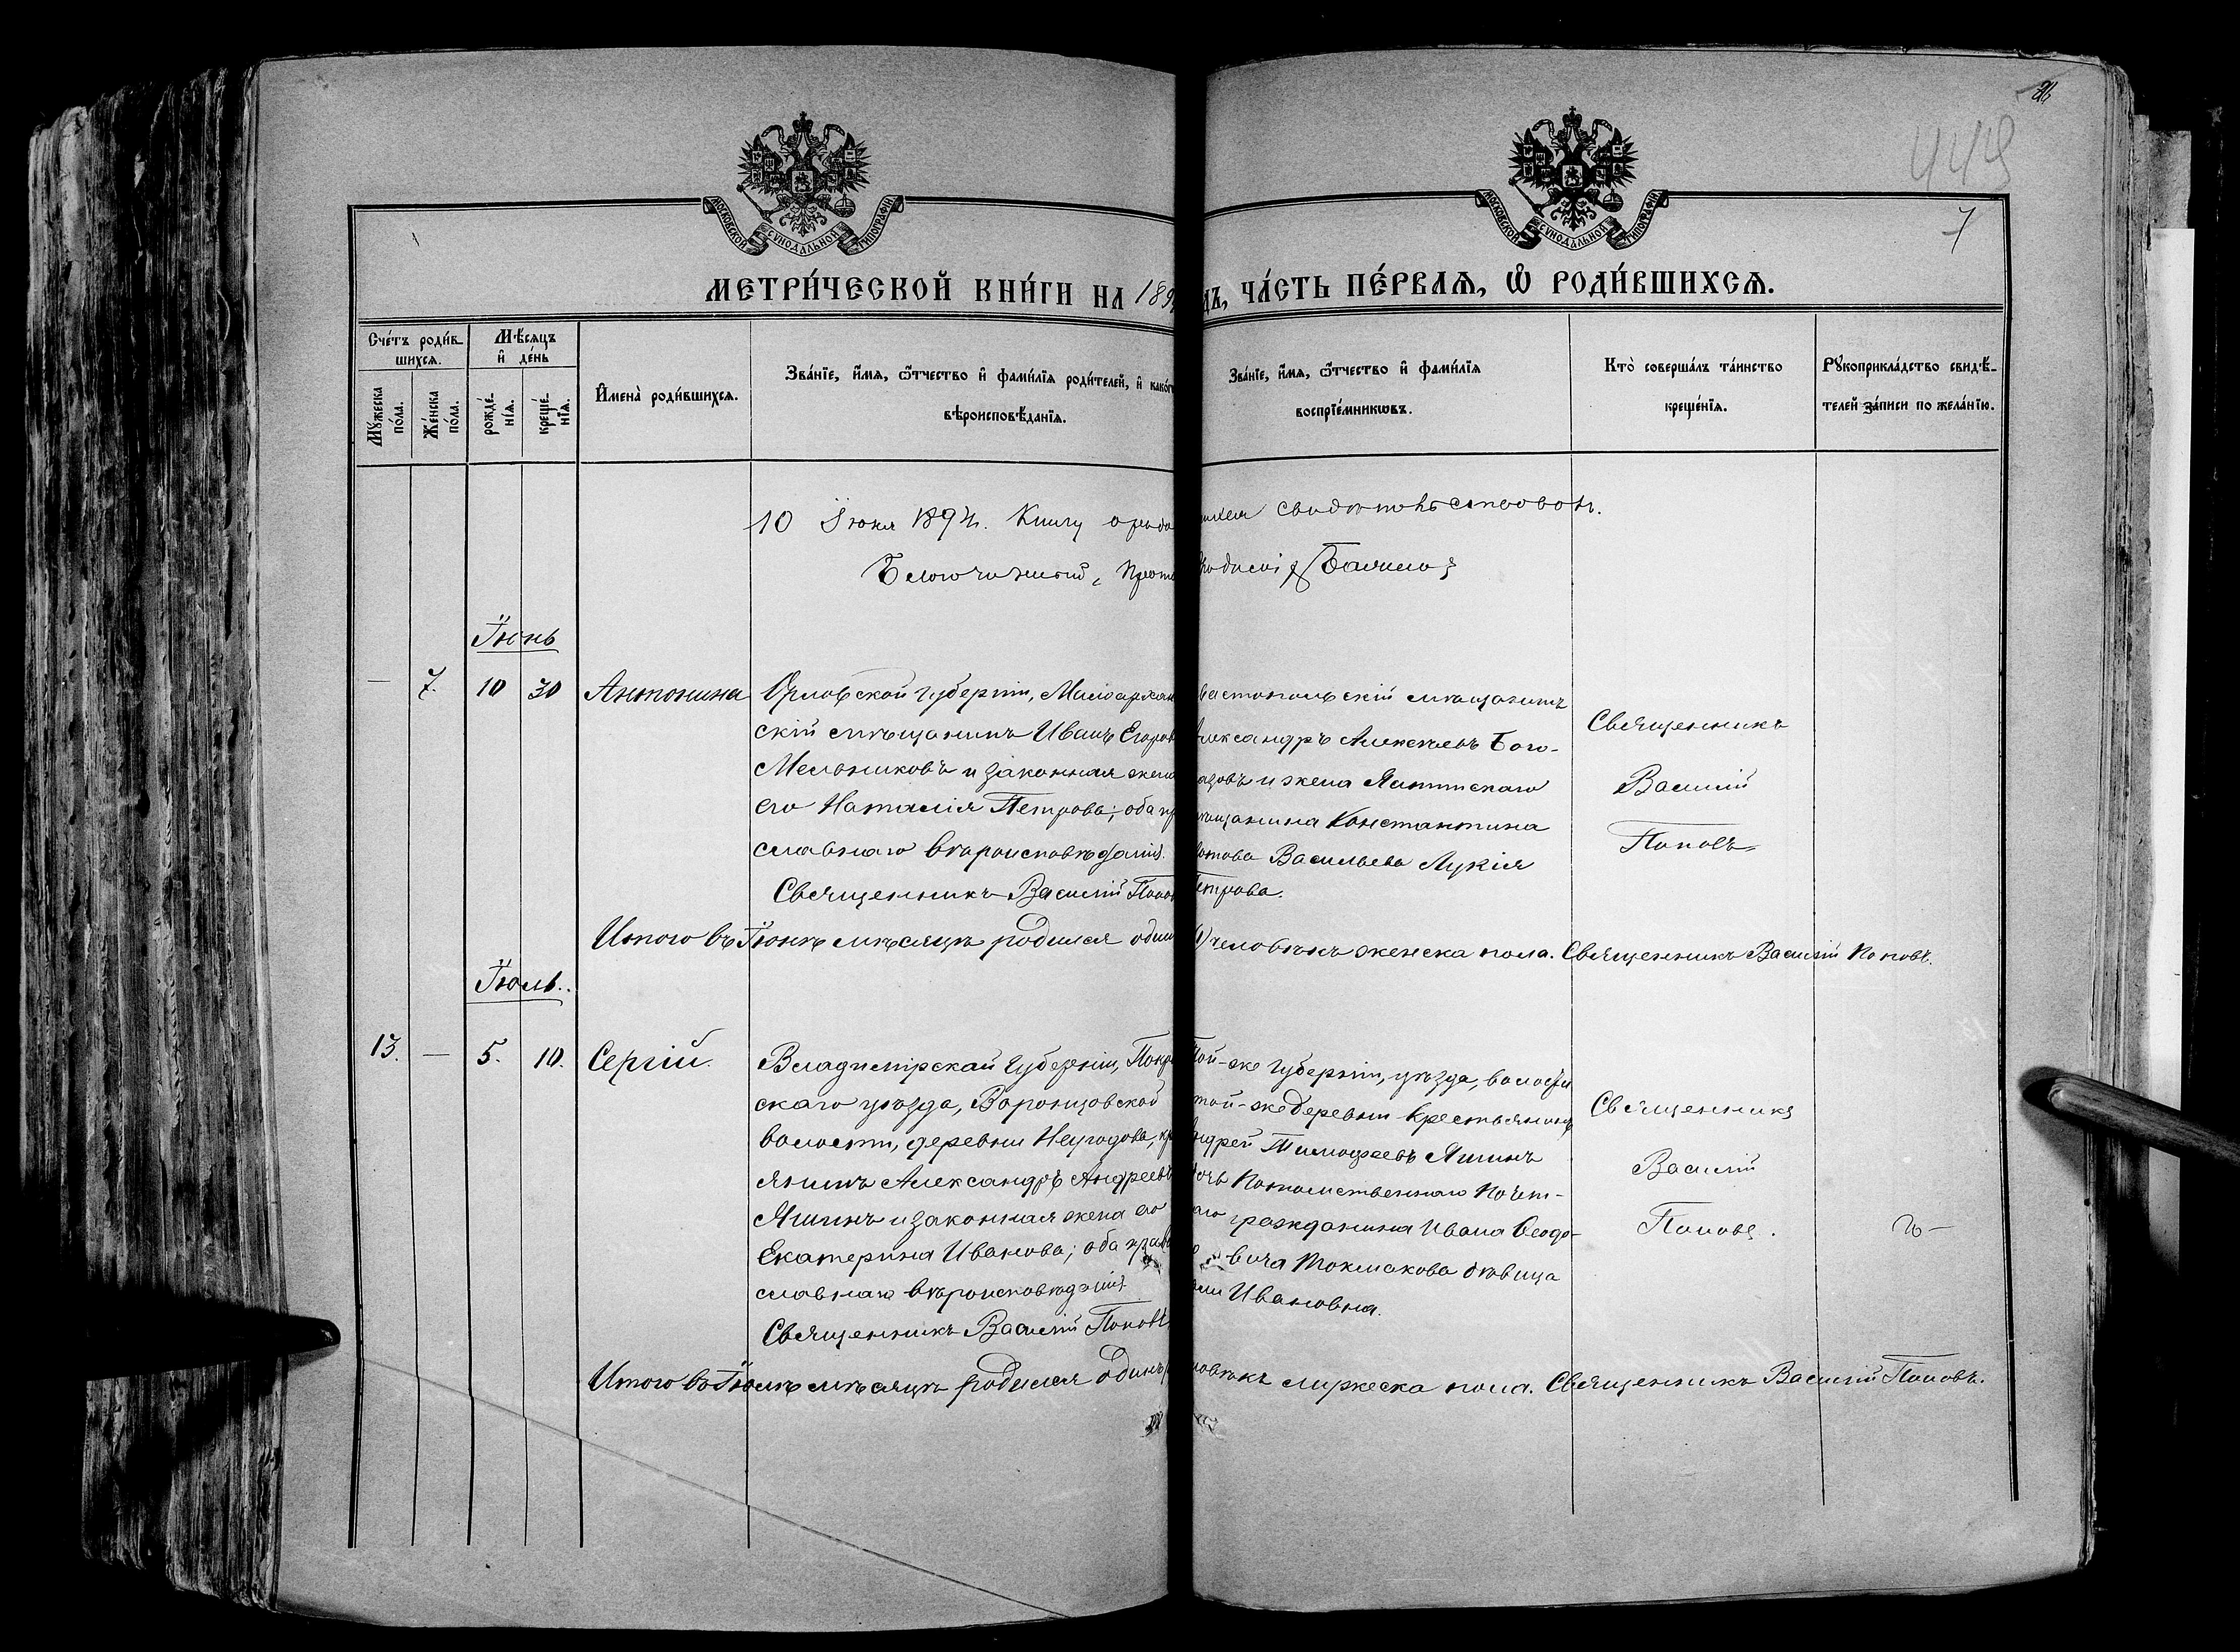 449
7
МОСКОВСКОЙ СѴНОДАЛЬНОЙ ТИПОГРАФІИ
МОСКОВСКОЙ СѴНОДАЛЬНОЙ ТИПОГРАФІИ
МЕТРИ́ЧЕСКОЙ КНИ́ГИ НА 189
ДЪ, ЧА́СТЬ ПЕ́РВАѦ, Ѡ҆ РОДИ́ВШИХСѦ.
Сче́тъ роди́в-
шихсѧ.
Мꙋ́жеска
по́ла.
Же́нска
по́ла.
Мѣ́сѧцъ
и҆ де́нь
рожде́-
нїѧ.
креще́-
нїѧ.
И҆мена̀ роди́вшихсѧ.
Зва́нїе, и҆́мѧ, ѻ҆́тчество и҆ фами́лїѧ роди́телей, и҆ како́г
вѣроисповѣ́данїѧ.
Зва́нїе, и҆́мѧ, ѻ҆́тчество и҆ фами́лїѧ
воспрїе́мникѡвъ.
Кто̀ соверша́лъ та́инство
креще́нїѧ.
Рꙋкоприкла́дство свидѣ́-
телей за́писи по жела́нїю.
10 Іюня 1894. Книгу свидѣтельствовалъ.
Благочинный,
Іюнь
— 7. 10 30 Антонина Орловской губерніи, Малоархан
скій мѣщанинъ Иванъ Егоров
Мельниковъ и законная жена
его Наталія Петрова; оба пр
славнаго вѣроисповѣданія.
Священникъ Василій Попов
вастопольскій мѣщанинъ
лександръ Алексѣевъ Бого-
азовъ и жена Ялтинскаго
ѣщанина Константина
Васильева Лукія
етрова.
Священникъ
Василій
Поповъ
Итого въ Іюнѣ мѣсяцѣ родился один (1) человѣкъ женска пола. Священникъ Василій Поповъ.
Іюль.
13. — 5. 10. Сергій. Владимірской губерніи, Покр
скаго уѣзда, Воронцовской
волости, деревни Неугодова, кр
янинъ Александръ Андреевъ
Яшинъ и законная жена его
Екатерина Иванова; оба право
славнаго вѣроисповѣданія
Священникъ Василій Поповъ
Той-же губерніи, уѣзда, волости
той-же деревни крестьянинъ
ндрей Тимоѳеевъ Яшинъ
очь Потомственнаго Почет-
аго гражданина Ивана Ѳеодо-
вича Токмакова дѣвица
Ивановна.
Священникъ
Василій
Поповъ.
Итого въ Іюлѣ мѣсяцѣ родился одинъ ловѣкъ мужеска пола. Священникъ Василій Поповъ.